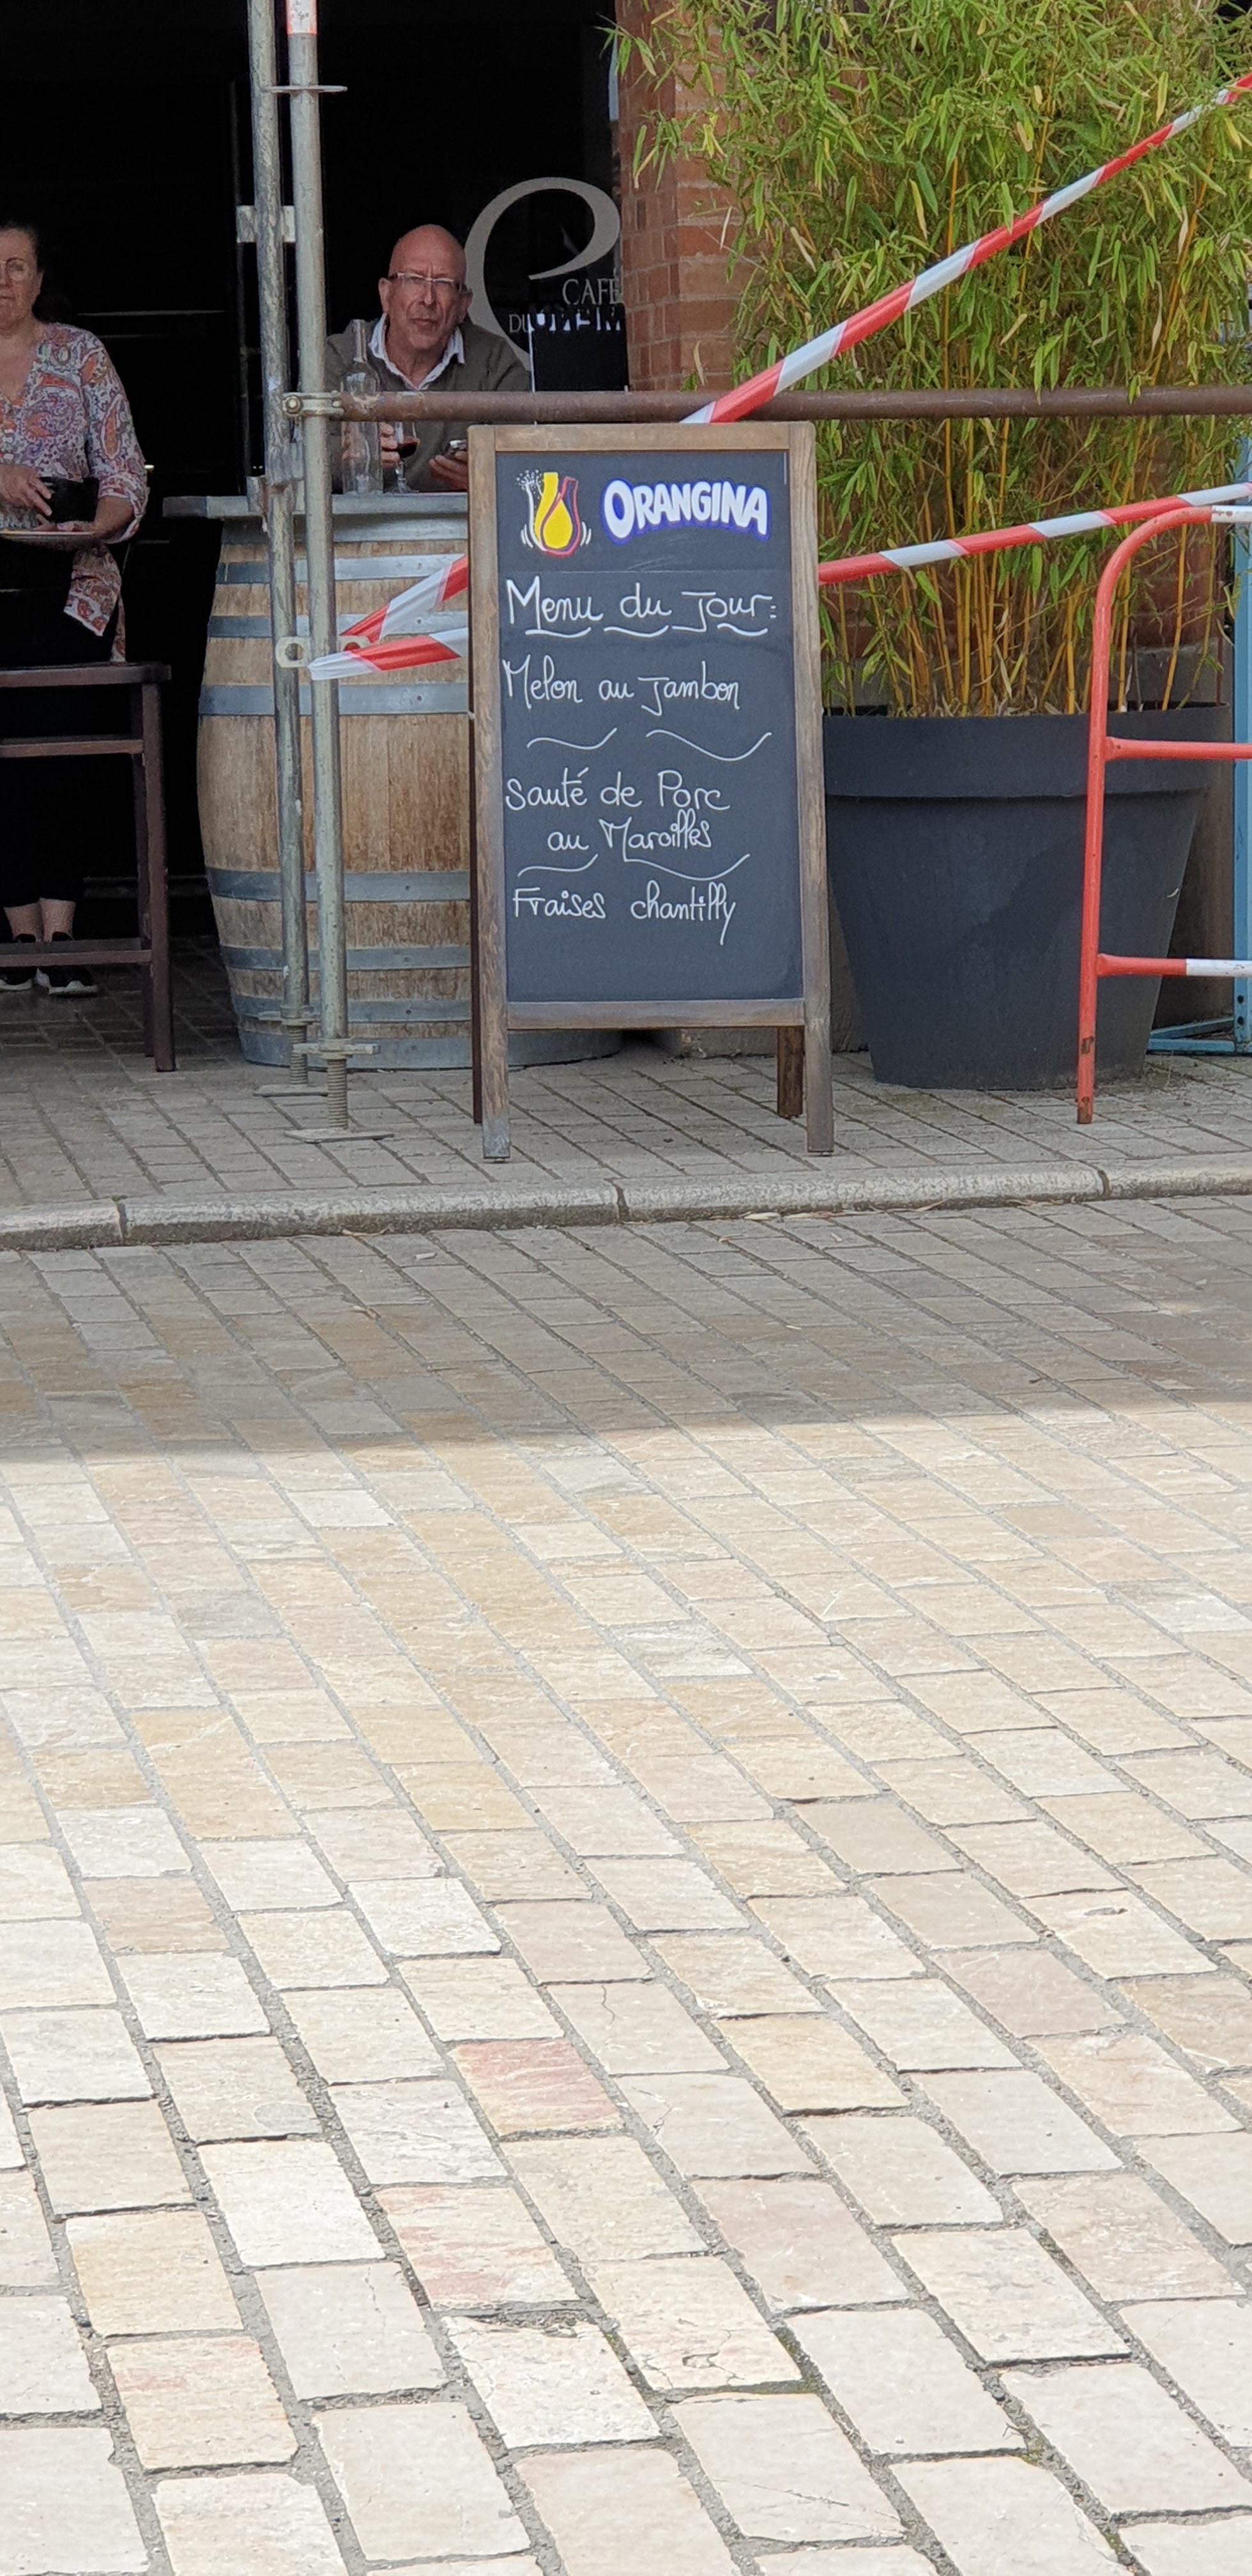 CAFE
DU
ORANGINA
Menu du Jour:
Melon au Jambon
Sauté de Porc
au Maroilles
Fraises chantilly